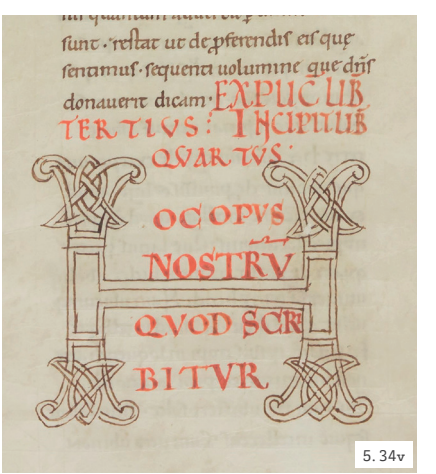 sunt · restat ut de ꝓferendis eis quę
sentimus · sequenti uolumine que dn̄s
donauerit dicam · EXPLIC LIB̄
TERTIVS : INCIPIT LIB̄
QVARTVS ·
HOC OPVS
NOSTRV̄
QVOD SCRI
BITVR
5.34v